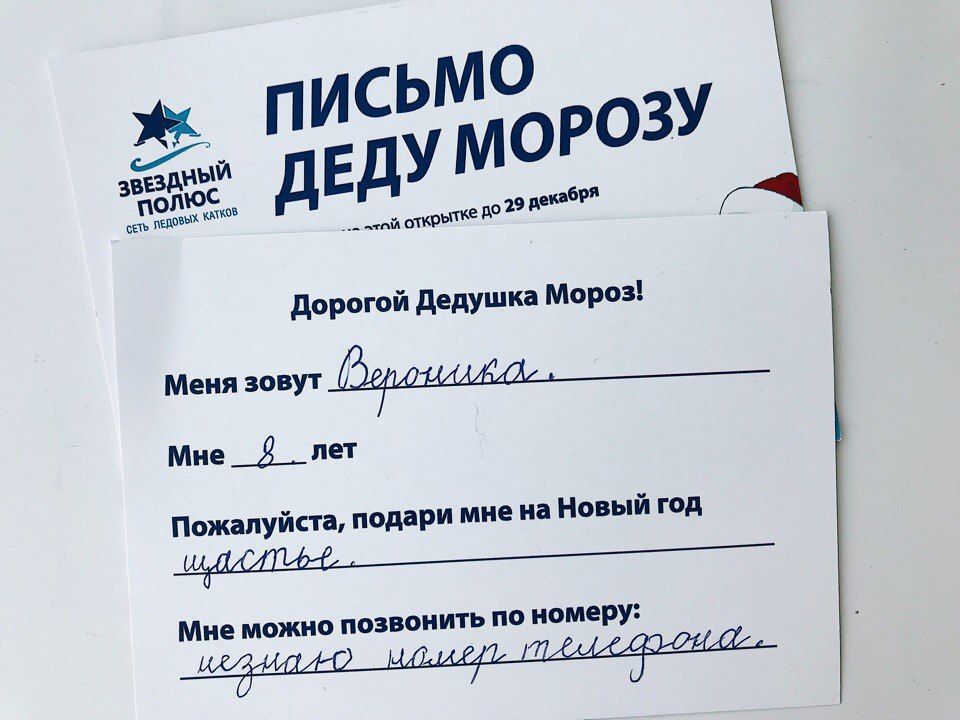 ЗВЕЗДНЫЙ
ПОЛЮС
СЕТЬ ЛЕДОВЫХ КАТКОВ
ПИСЬМО
ДЕДУ МОРОЗУ
этой открытке до 29 декабря
Дорогой Дедушка Мороз!
Меня зовут Вероника.
Мне 8. лет
Пожалуйста, подари мне на Новый год
щастье.
Мне можно позвонить по номеру:
незнаю номер телефона.